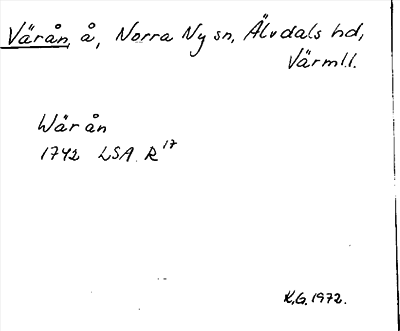 Värån, å, Norra Ny sn, Älvdals hd,
Värml.l.
Wär ån
1742 LSA R 17
K.G. 1972.